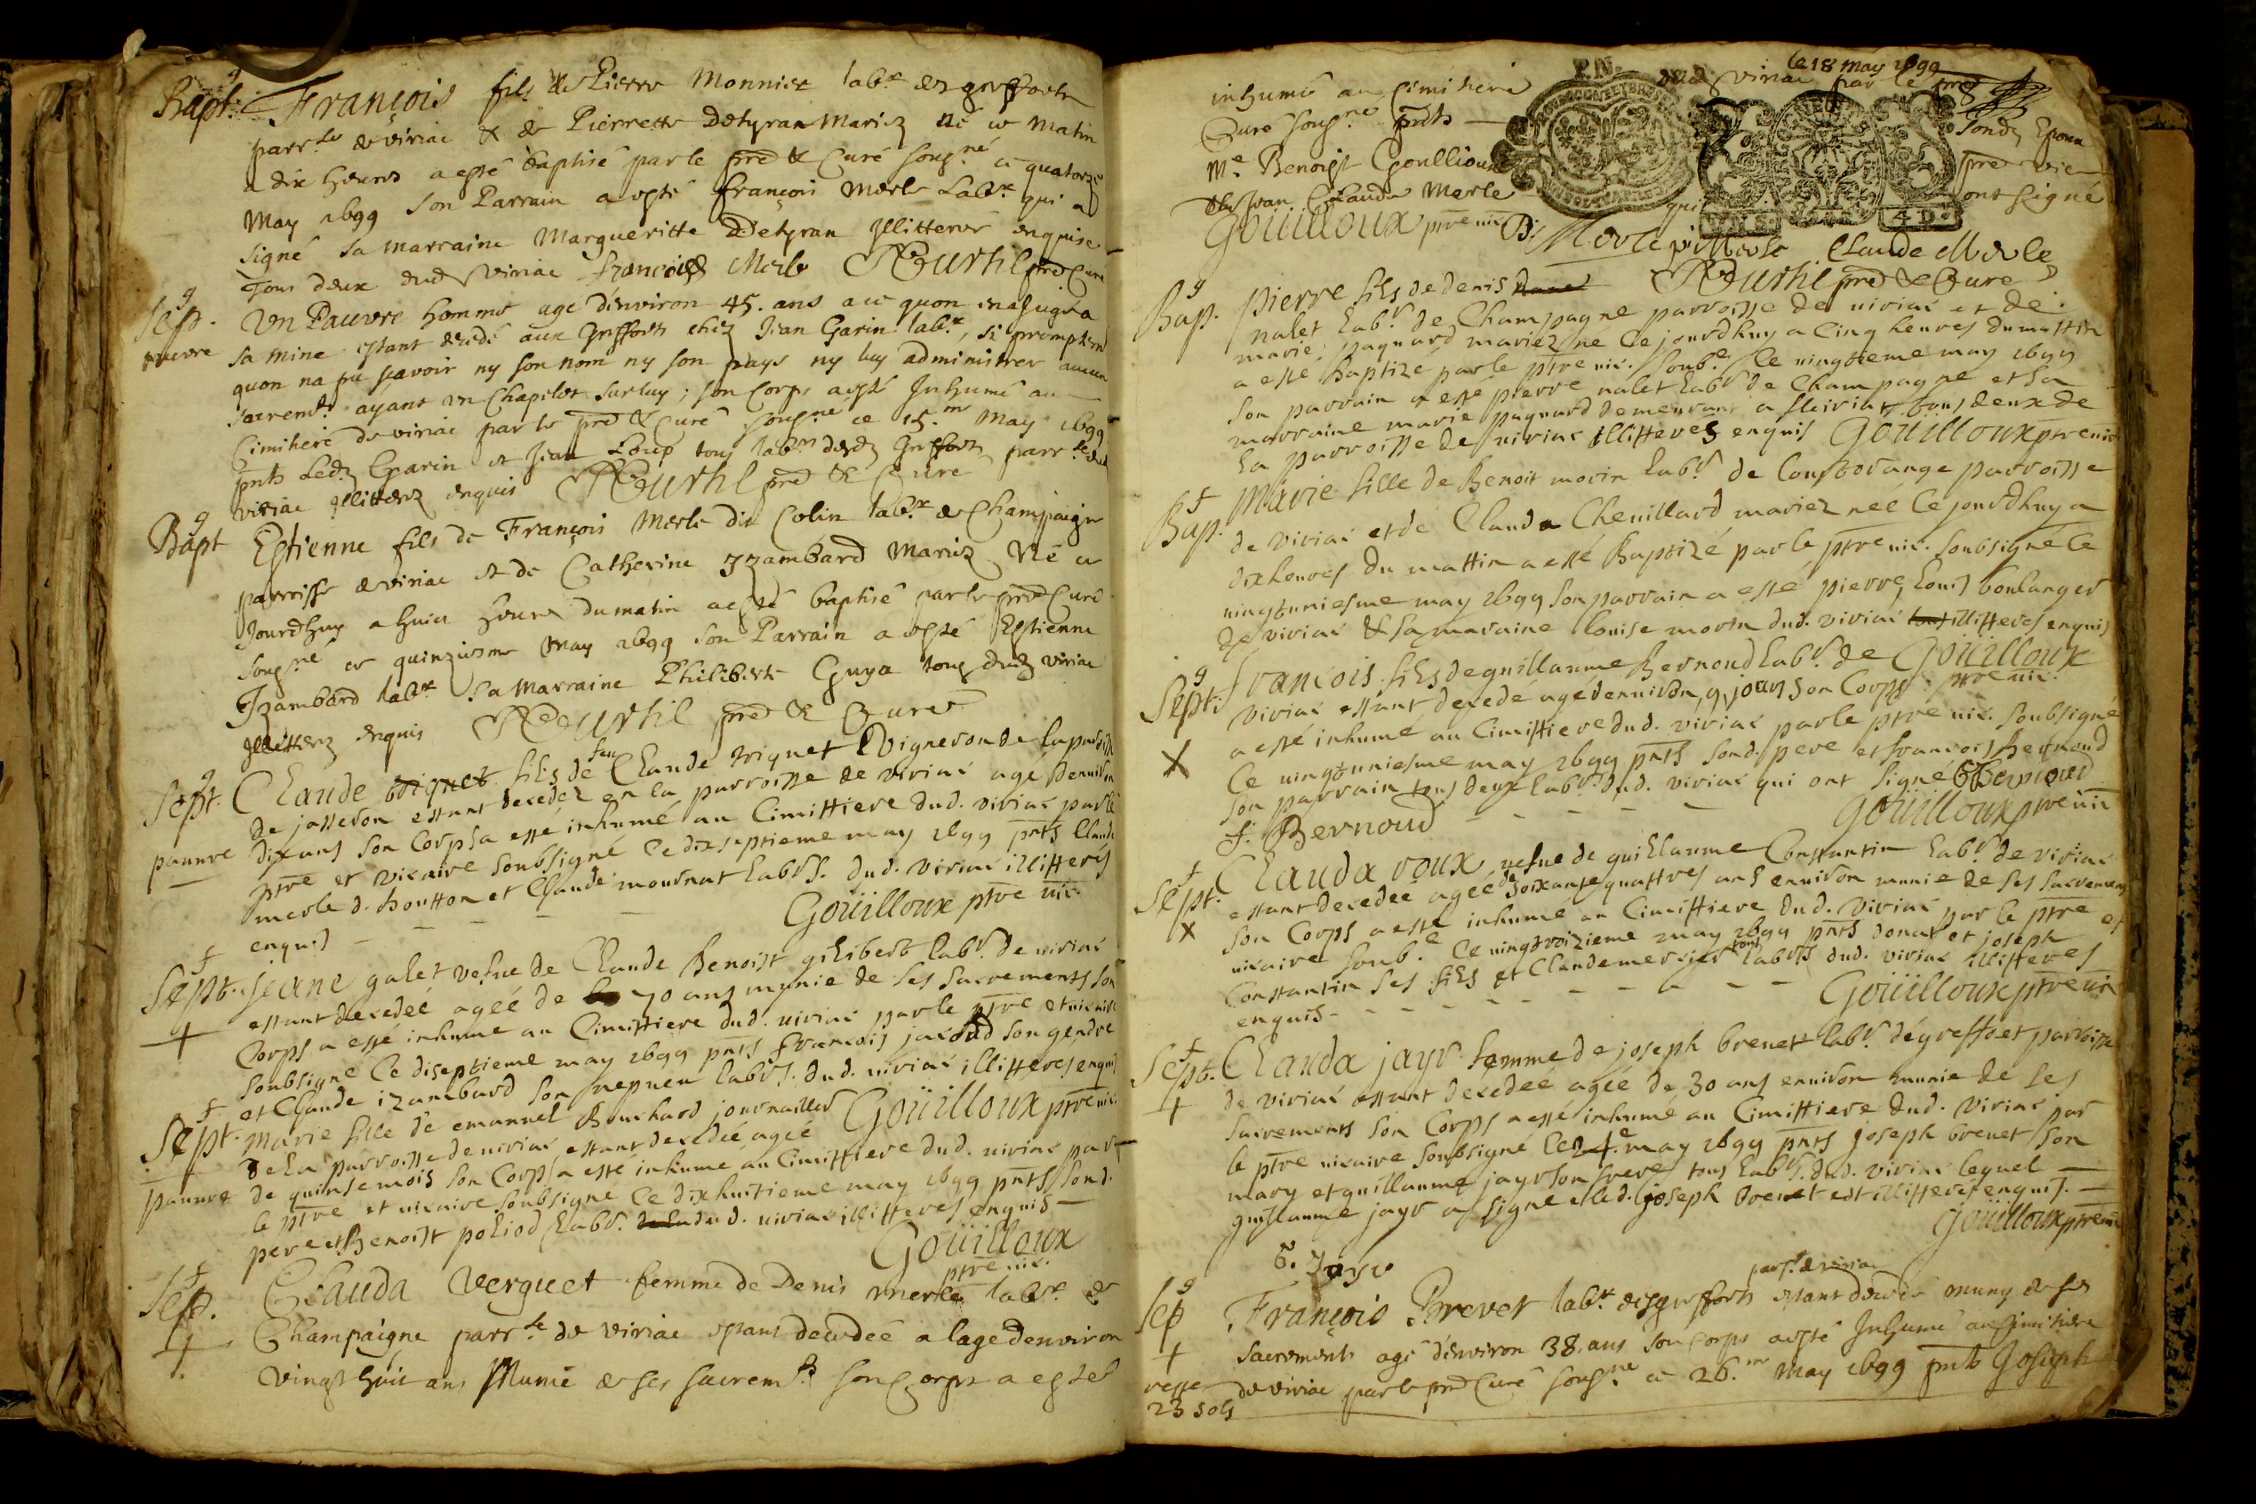 g
Bapt. François fils de Pierre Monnier labr. des greffets
parr.se de viriac & de Pierrette Detyran Mariez né ce Matin
a dix heures a esté baptisé par le pred & Curé sousg.né ce quatorze
May 1699 Son Parrain a esté françois Merle Labr. qui a
signé Sa marraine Margueritte Detyran Illitteres enquise
Tous deux dud. viriac françois Merle Burtil pred Curé
g
Sep. Un Pauvre homme agé d'environ 45. ans a ce quon en a jugé a
pauvre sa mine estant decedé aux Greffets chez Jean Garin labr., si promptem.t
quon na pu scavoir ny son nom ny son pays ny luy administrer aucun
sacrem.t ayant un Chapelet sur luy ; son Corps a esté Inhumé au
Cimitiere de viriac par le pred & Curé sousg.né ce 15.me May 1699
pnts Led. Garin et Jean Loup tous labrs desd. Greffets parr.se dud.
viriac Illitterez enquis Burtil pred & Curé
g
Bapt Estienne fils de François Merle dit Colin labr. de Champaigne
parroisse de viriac et de Catherine Izambard Mariez Né ce
Jourdhuy a huit heures du matin a esté baptisé par le pred Curé
sousg.né ce quinziesme May 1699 Son Parrain a esté Estienne
Izambard labr. Sa Marraine Philiberte Guya tous dud. viriac
Illitterez enquis Burtil pred & Curé
g
Sept. Claude fils de feu Claude triquet Vigneron de la parroisse
de jasseron estant decedez en la parroisse de viriac agé denviron
pauvre dix ans son Corps a esté inhumé au Cimittiere dud. viriac par le
ptre et vicaire soubsigné Ce dixseptieme may 1699 pnts Claude
merle d. boutton et Claude mournat Labrs. dud. viriac illitterés
enquis Goüilloux ptre vic.
f
Sept. Jeane galet vefue de Claude Benoist giliberd labr. de viriac
+ estant decedeé ageé de 70 ans munie de ses sacrements son
Corps a esté inhumé au Cimittiere dud. viriac par le ptre et vicaire
soubsigné Ce diseptieme may 1699 pnts francois jacoud son gendre
et Claude izambard son nepueu labrs. dud. viriac illitteres enquis
f
Sept. Marie fille de emanuel Bouchard journaillier Goüilloux ptre vic.
+ de la parroisse de viriac estant decedeé ageé
pauure de quinse mois son Corps a esté inhumé au Cimittiere dud. viriac par
le ptre et vicaire soubsigné Ce dixhuitieme may 1699 pnts sond.
pere et Benoist poliod Labr. dud. viriac illitteres enquis
Goüilloux
ptre vic.
f
Sep. Clauda Verguet femme de Denis merle labr. de
4 Champaigne parr.se de viriac estant decedeé a lage denviron
vingt huit ans Munie de ses sacrem.ts son Corps a esté
le 18 may 1699
inhumé au Cimitiere dud. viriac par le pred
Curé sousg.né pnts sond. Epoux
Me. Benoist Goullioux pre vic
Claude Merle qui ont signé
Goüilloux ptre vic Merle Claude Merle
Burtil pred & Curé
g
Bap. Pierre fils de denis
nalet Labr. de Champagne parroisse de viriac et de
marie paguard mariez ne Ce jourdhuy a Cinq heures du mattin
a esté Baptizé par le ptre vic. soub.e Ce vingtieme may 1699
Son parrain a esté pierre nalet Labr. de Champagne et sa
marraine marie paguard demeurant a fleiriat tous deux de
la parroisse de viriac illitteres enquis Goüilloux ptre vic
f
Bap. Marie fille de Benoit morin Labr. de Longborange parroisse
de viriac et de Clauda Chevillard mariez neé Ce jourdhuy a
dix heures du mattin a esté Baptizé par le ptre vic. soubsigné Ce
vingtuniesme may 1699 son parrain a esté pierre Louis boulanger
de viriac & sa maraine louise morin dud. viriac illitteres enquis
g
Sept. francois fils de guillaume Bernoud Labr. de Goüilloux
viriac estant decede agé denviron 9 jours son Corps ptre vic.
X a esté inhumé au Cimittiere dud. viriac par le ptre vic. soubsigné
Ce vingtuniesme may 1699 pnts sond. pere et francois Bernoud
son parrain tous deux labrs. dud. viriac qui ont signé G Bernoud
f. Bernoud Goüilloux ptre vic
f
Sept. Clauda roux vefue de guillaume Constantin Labr. de viriac
X estant decedeé ageé de soixante quattres ans enuiron munie de ses sacrements
son Corps a esté inhumé au Cimittiere dud. viriac par le ptre et
vicaire soub.e Ce vingtroizieme may 1699 pnts donat et joseph
Constantin ses fils et Claude mercier tous labrs dud. viriac illitteres
enquis Goüilloux ptre vic
f
Sept. Clauda jayr femme de joseph brevet labr. dégreffet parroisse
+ de viriac estant decedeé ageé de 30 ans enuiron munie de ses
sacrements son Corps a esté inhumé au Cimittiere dud. viriac par
le ptre vicaire soubsigné le 24.e may 1699 pnts joseph brevet son
mary et guillaume jayr son frere tous Labrs. dud. viriac lequel
guillaume jayr a signé et led. joseph brevet est illitteré enquis.
G. Jayr Goüilloux ptre vic
g
Sep François Brevet labr. desgreffets parr.se de viriac estant decedé muny de ses
+ sacrements agé denviron 38. ans son Corps a esté Inhumé au Cimitiere
reste de viriac par le pred Curé sousg.né ce 26.me May 1699 pnts Joseph
23 sols